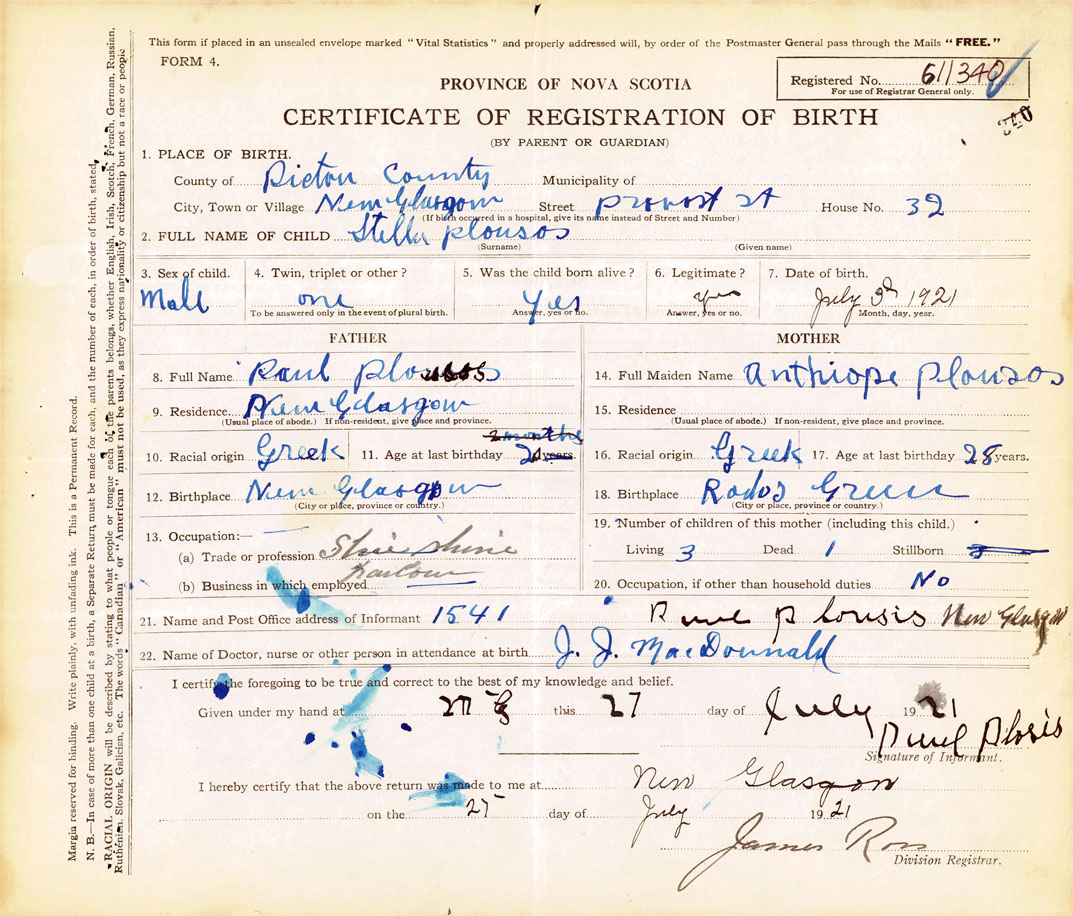 This form if placed in an unsealed envelope marked "Vital Statistics" and properly addressed will, by order of the Postmaster General pass through the Mails "FREE."
FORM 4.
Registered No. 611340
For use of Registrar General only.
340
PROVINCE OF NOVA SCOTIA
CERTIFICATE OF REGISTRATION OF BIRTH
(BY PARENT OR GUARDIAN)
1. PLACE OF BIRTH.
County of Picton County Municipality of
City, Town or Village New Glasgow Street Provost St House No. 32
(If birth occurred in a hospital, give its name instead of Street and Number)
2. FULL NAME OF CHILD Stella Plousos
(Surname) (Given name)
3. Sex of child. 4. Twin, triplet or other? 5. Was the child born alive? 6. Legitimate? 7. Date of birth.
Mall one Yes yes July 3d 1921
To be answered only in the event of plural birth. Answer, yes or no. Answer, yes or no. Month, day, year.
FATHER MOTHER
8. Full Name Paul 14. Full Maiden Name Anthiope Plousos
9. Residence New Glasgow 15. Residence
(Usual place of abode.) If non-resident, give place and province. (Usual place of abode.) If non-resident, give place and province.
2 months
10. Racial origin Greek 11. Age at last birthday years 16. Racial origin Greek 17. Age at last birthday 28 years.
12. Birthplace New Glasgow 18. Birthplace Rodos Greece
(City or place, province or country.) (City or place, province or country.)
13. Occupation:— 19. Number of children of this mother (including this child.)
(a) Trade or profession Shoe shine Living 3 Dead 1 Stillborn
parlour
(b) Business in which employed 20. Occupation, if other than household duties No
21. Name and Post Office address of Informant 1541 Paul Plousis New Glasgow
22. Name of Doctor, nurse or other person in attendance at birth J. J. MacDonnald
I certify the foregoing to be true and correct to the best of my knowledge and belief.
Given under my hand at this 27 day of July 1921
Paul Plosis
Signature of Informant.
I hereby certify that the above return was made to me at New Glasgow
on the 27 day of July 1921
James Ross
Division Registrar.
Margin reserved for binding. Write plainly, with unfading ink. This is a Permanent Record.
N. B.—In case of more than one child at a birth, a Separate Return must be made for each, and the number of each, in order of birth, stated.
RACIAL ORIGIN will be described by stating to what people or tongue each of the parents belongs, whether English, Irish, Scotch, French, German, Russian,
Ruthenian, Slovak, Galician, etc. The words "Canadian" or "American" must not be used, as they express nationality or citizenship but not a race or people